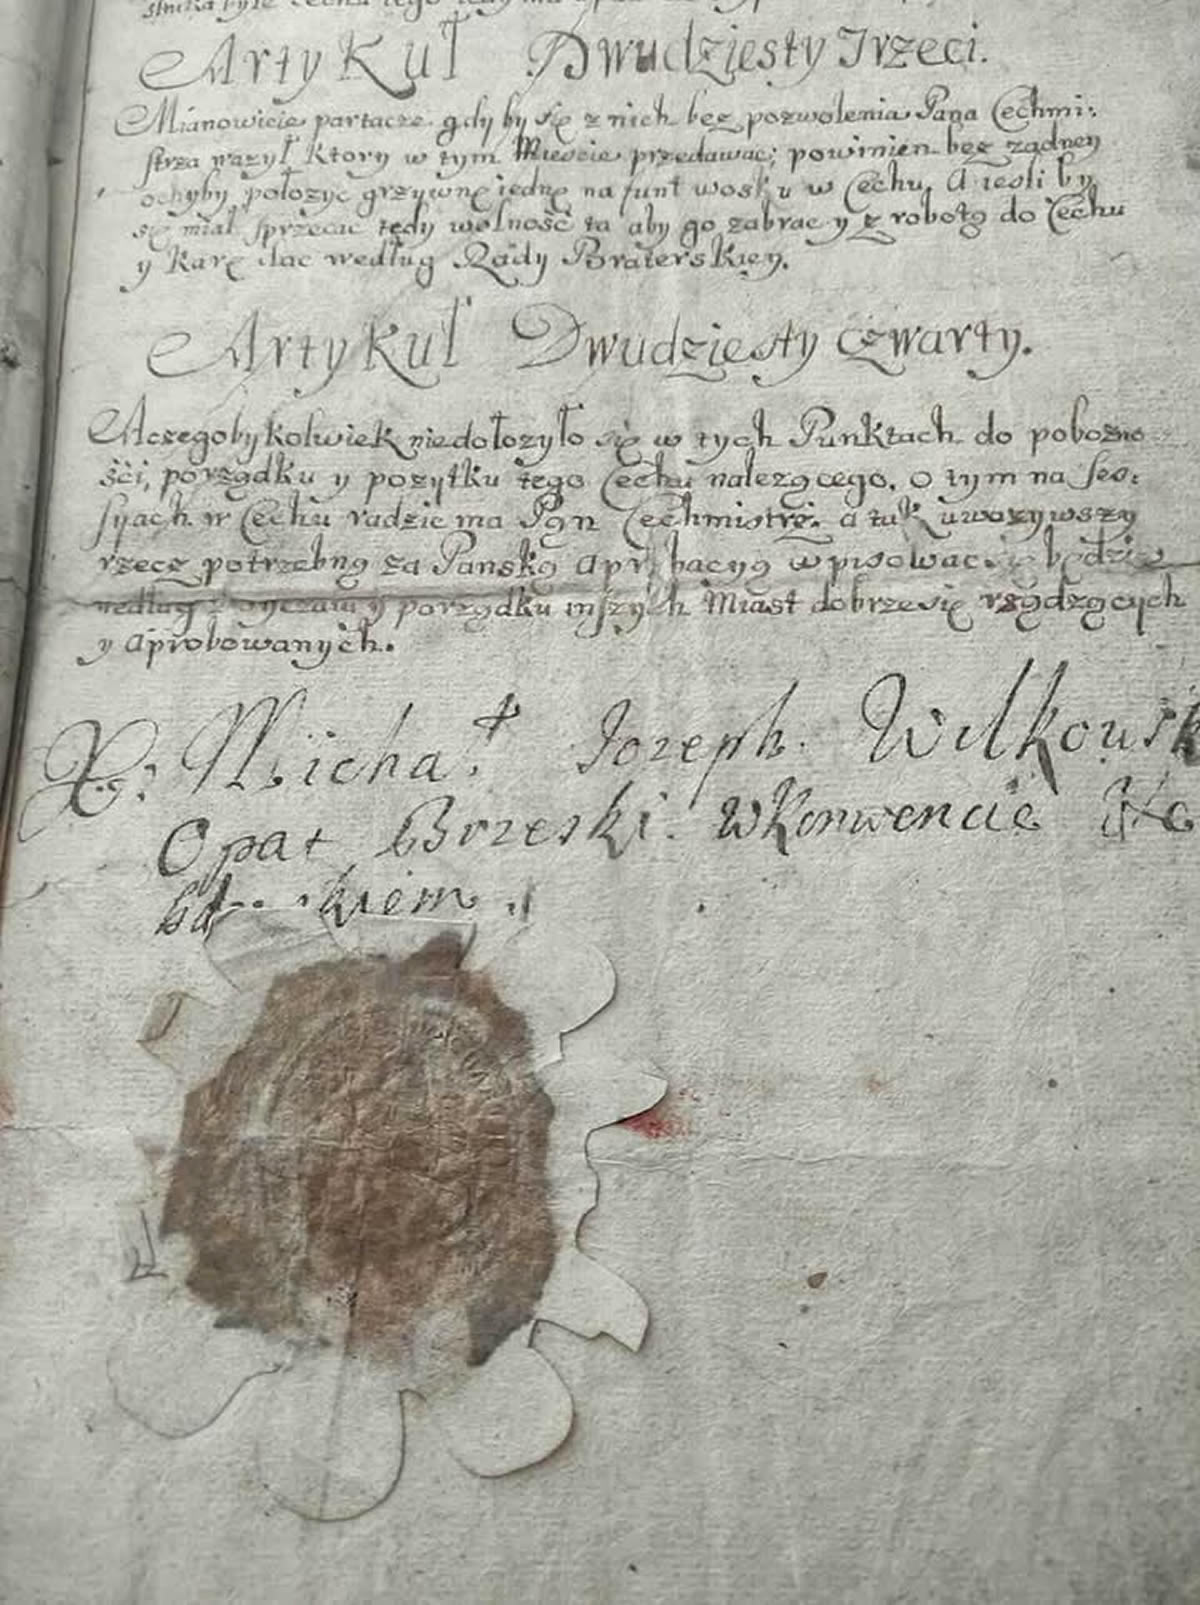 Artykuł Dwudziesty Trzeci.
Mianowicie partacze gdyby się z nich bez pozwolenia Pana Cechmi:
strza wazył ktory w tym Miescie przedawac; powinien bez zadney
ochyby połozyc grzywnę iednę na funt wosku w Cechu, A iesli by
się miał sprzeciac tedy wolność ta aby go zabrac y z robotą do Cechu
y Karę dac według Rady Braterskiey.
Artykuł Dwudziesty Czwarty.
Aczegobykolwiek niedołozyło się w tych Punktach do pobozno
ści, porządku y pozytku tego Cechu nalezącego, o tym na Ses:
syiach w Cechu radzic ma Pan Cechmistrz. a tak uwazywszy
rzecz potrzebną za Panską wpisowac będzie
według y porządku inszych Miast dobrze się rządzących
y aprobowanych.
X: Michał Jozeph Wilkowsk
Opat Brzeski w Konwencie